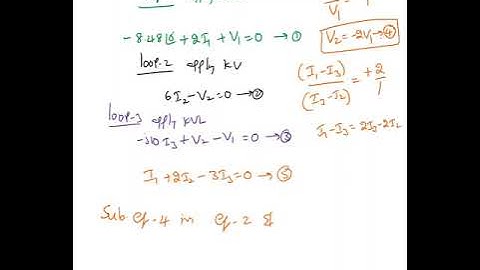 V₁
-8.48∠0 + 2I₁ + V₁ = 0 → ①
V₂ = -2V₁ → ④
loop-2 apply KV
(I₁-I₃)/(I₃-I₂) = +2/1
6I₂ - V₂ = 0 → ②
loop-3
apply KVL
-j10I₃ + V₂ - V₁ = 0 → ③
I₁-I₃ = 2I₃-2I₂
I₁ + 2I₂ - 3I₃ = 0 → ⑤
Sub eq-4 in eq-2 &